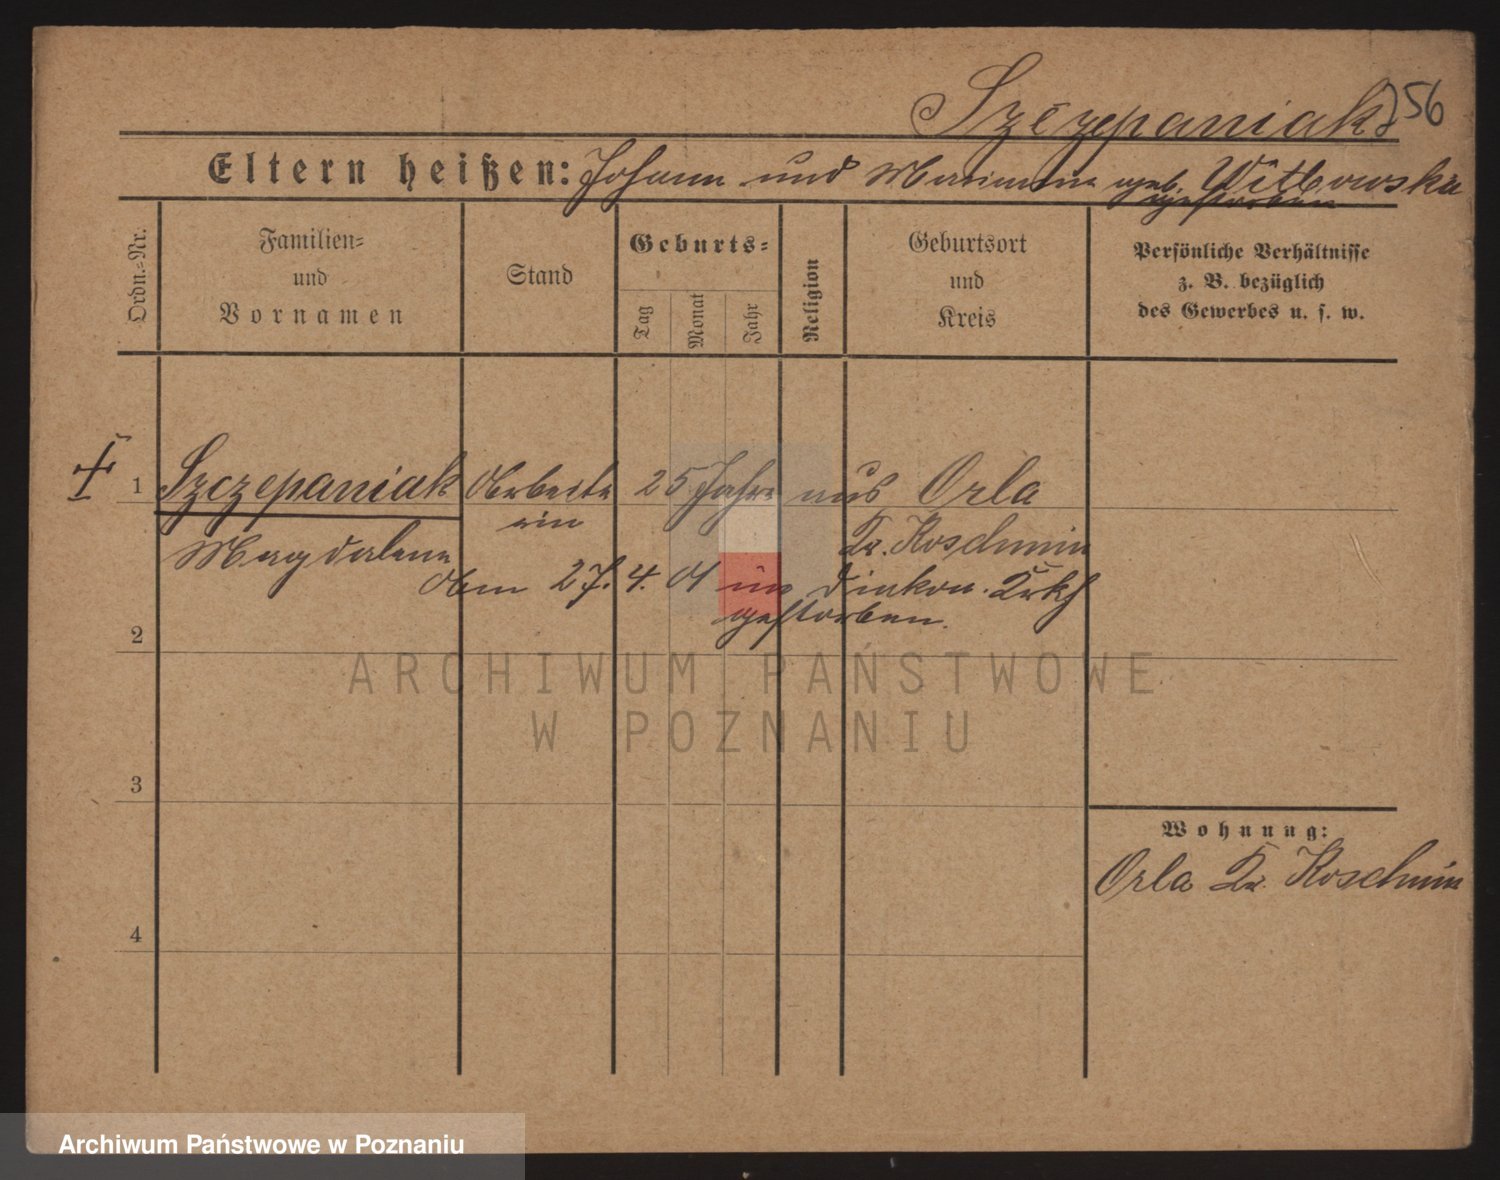 Szczepaniak 756
Eltern heißen: Johann und Marianna geb. Witkowska
gestorben
Ordn.-Nr.
Familien-
und
Vornamen
Stand
Geburts-
Tag
Monat
Jahr
Religion
Geburtsort
und
Kreis
Persönliche Verhältnisse
z. B. bezüglich
des Gewerbes u. s. w.
1 Szczepaniak Arbeite 25 Jahre aus Orla
rin Kr. Koschmin
Magdalena
Am 27. 4. 01 im Diakon. Krkh
gestorben.
2
ARCHIWUM PAŃSTWOWE
W POZNANIU
3
Wohnung:
Orla Kr. Koschmin
4
Archiwum Państwowe w Poznaniu